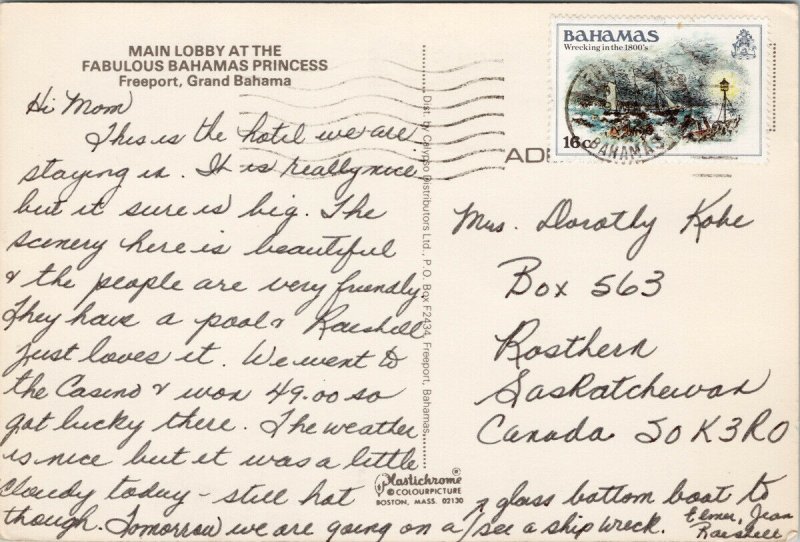 MAIN LOBBY AT THE
FABULOUS BAHAMAS PRINCESS
Freeport, Grand Bahama
Hi Mom
This is the hotel we are
staying in. It is really nice
but it sure is big. The
scenery here is beautiful
& the people are very friendly.
They have a pool & Raeshell
just loves it. We went to
the Casino & won 49.00 so
got lucky there. The weather
is nice but it was a little
cloudy today - still hot
though. Tomorrow we are going on a
glass bottom boat to
see a ship wreck.
Elmer, Jean
Raeshell
Dist. by Calypso Distributors Ltd., P.O. Box F2434, Freeport, Bahamas.
Plastichrome ®
© COLOURPICTURE
BOSTON, MASS. 02130
BAHAMAS
Wrecking in the 1800's
16c
BAHAMAS
Mrs. Dorothy Kobe
Box 563
Rosthern
Saskatchewan
Canada S0K3R0